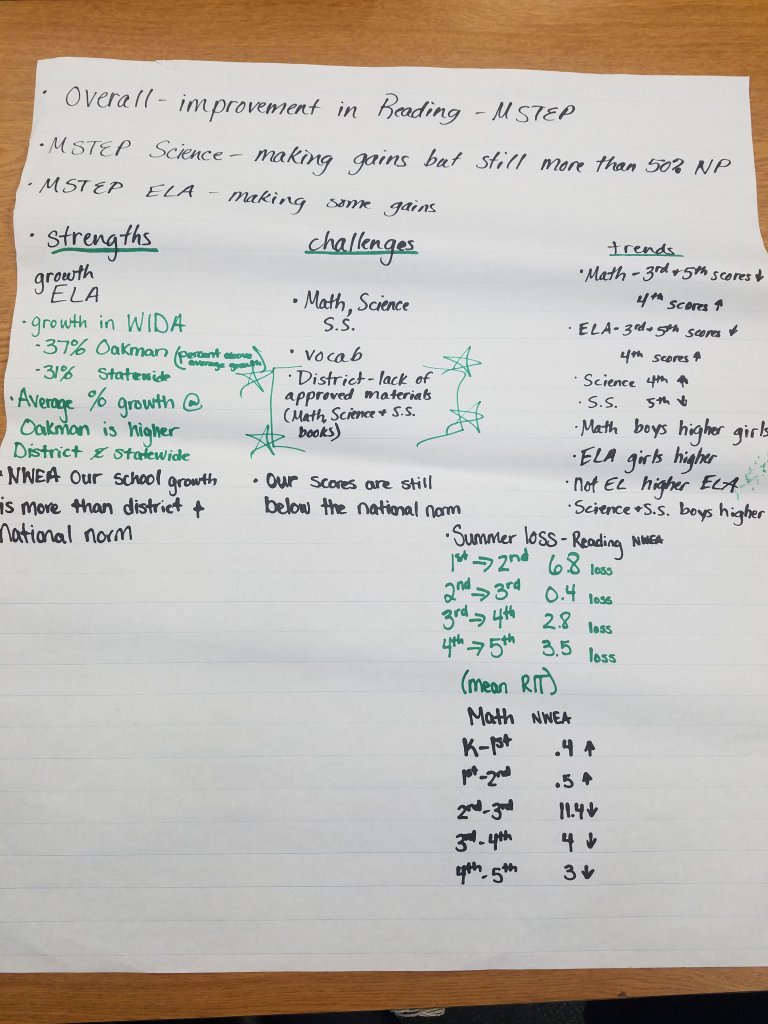 • Overall - improvement in Reading - MSTEP
• MSTEP Science - making gains but still more than 50% NP
• MSTEP ELA - making some gains
• Strengths
growth
ELA
• growth in WIDA
- 37% Oakman (percent above average growth)
- 31% Statewide
• Average % growth @
Oakman is higher
District & Statewide
• NWEA Our school growth
is more than district +
National norm
challenges
• Math, Science
S.S.
• vocab
• District - lack of
approved materials
(Math, Science + S.S.
books)
• Our scores are still
below the national norm
trends
• Math - 3rd + 5th scores ↓
4th scores ↑
• ELA - 3rd + 5th scores ↓
4th scores ↑
• Science 4th ↑
• S.S. 5th ↓
• Math boys higher girls
• ELA girls higher
• not EL higher ELA
• Science + S.S. boys higher
• Summer loss - Reading NWEA
1st → 2nd 6.8 loss
2nd → 3rd 0.4 loss
3rd → 4th 2.8 loss
4th → 5th 3.5 loss
(mean RIT)
Math NWEA
K - 1st .4 ↑
1st - 2nd .5 ↑
2nd - 3rd 11.4 ↓
3rd - 4th 4 ↓
4th - 5th 3 ↓